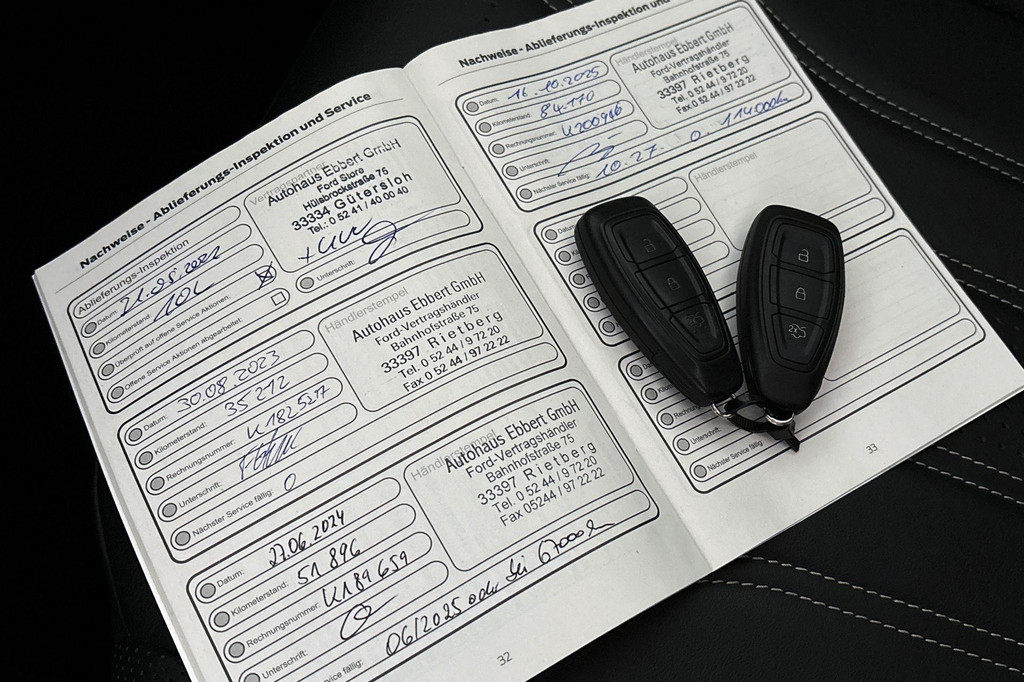 Nachweise - Ablieferungs-Inspektion und Service
Ablieferungs-Inspektion
Datum: 21.09.2022
Kilometerstand: 101
Überprüft auf offene Service Aktionen:
Offene Service Aktionen abgearbeitet:
Vertragspartner
Autohaus Ebbert GmbH
Ford Store
Hülsbrockstraße 75
33334 Gütersloh
Tel.: 0 52 41 / 40 00 40
Unterschrift:
Datum: 30.08.2023
Kilometerstand: 35 212
Rechnungsnummer: K1825277
Unterschrift:
Nächster Service fällig: 0
Händlerstempel
Autohaus Ebbert GmbH
Ford-Vertragshändler
Bahnhofstraße 75
33397 Rietberg
Tel. 0 52 44 / 9 72 20
Fax 0 52 44 / 97 22 22
Datum: 27.06.2024
Kilometerstand: 51 896
Rechnungsnummer: K189 659
Unterschrift:
fällig: 06/2025 oder bei 67000 km
Händlerstempel
Autohaus Ebbert GmbH
Ford-Vertragshändler
Bahnhofstraße 75
33397 Rietberg
Tel. 0 52 44 / 9 72 20
Fax 05244 / 97 22 22
32
Nachweise - Ablieferungs-Inspektion und
Datum: 16.10.2025
Kilometerstand: 84.170
Rechnungsnummer: K200946
Unterschrift:
Nächster Service fällig: 10.27. o. 114000km
Händlerstempel
Autohaus Ebbert GmbH
Ford-Vertragshändler
Bahnhofstraße 75
33397 Rietberg
Tel. 0 52 44 / 9 72 20
Fax 0 52 44 / 97 22 22
Händlerstempel
Unterschrift:
Nächster Service fällig:
33
2x